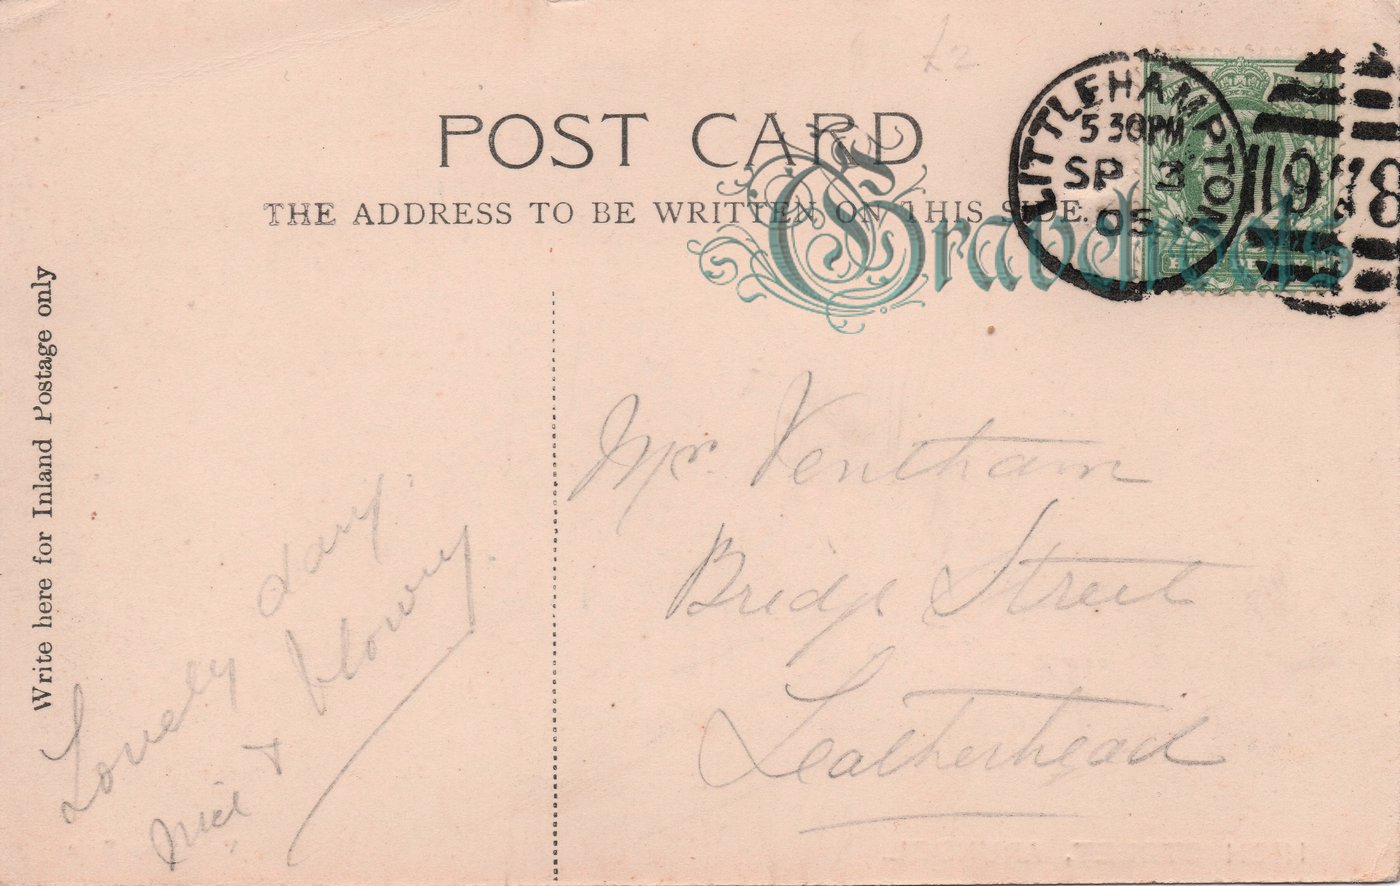 £2
POST CARD
THE ADDRESS TO BE WRITTEN ON THIS SIDE.
LITTLEHAMPTON
5 30PM
SP 3
05
Write here for Inland Postage only
Lovely day.
nice &
Mr. Ventham
Bridge Street
Leatherhead